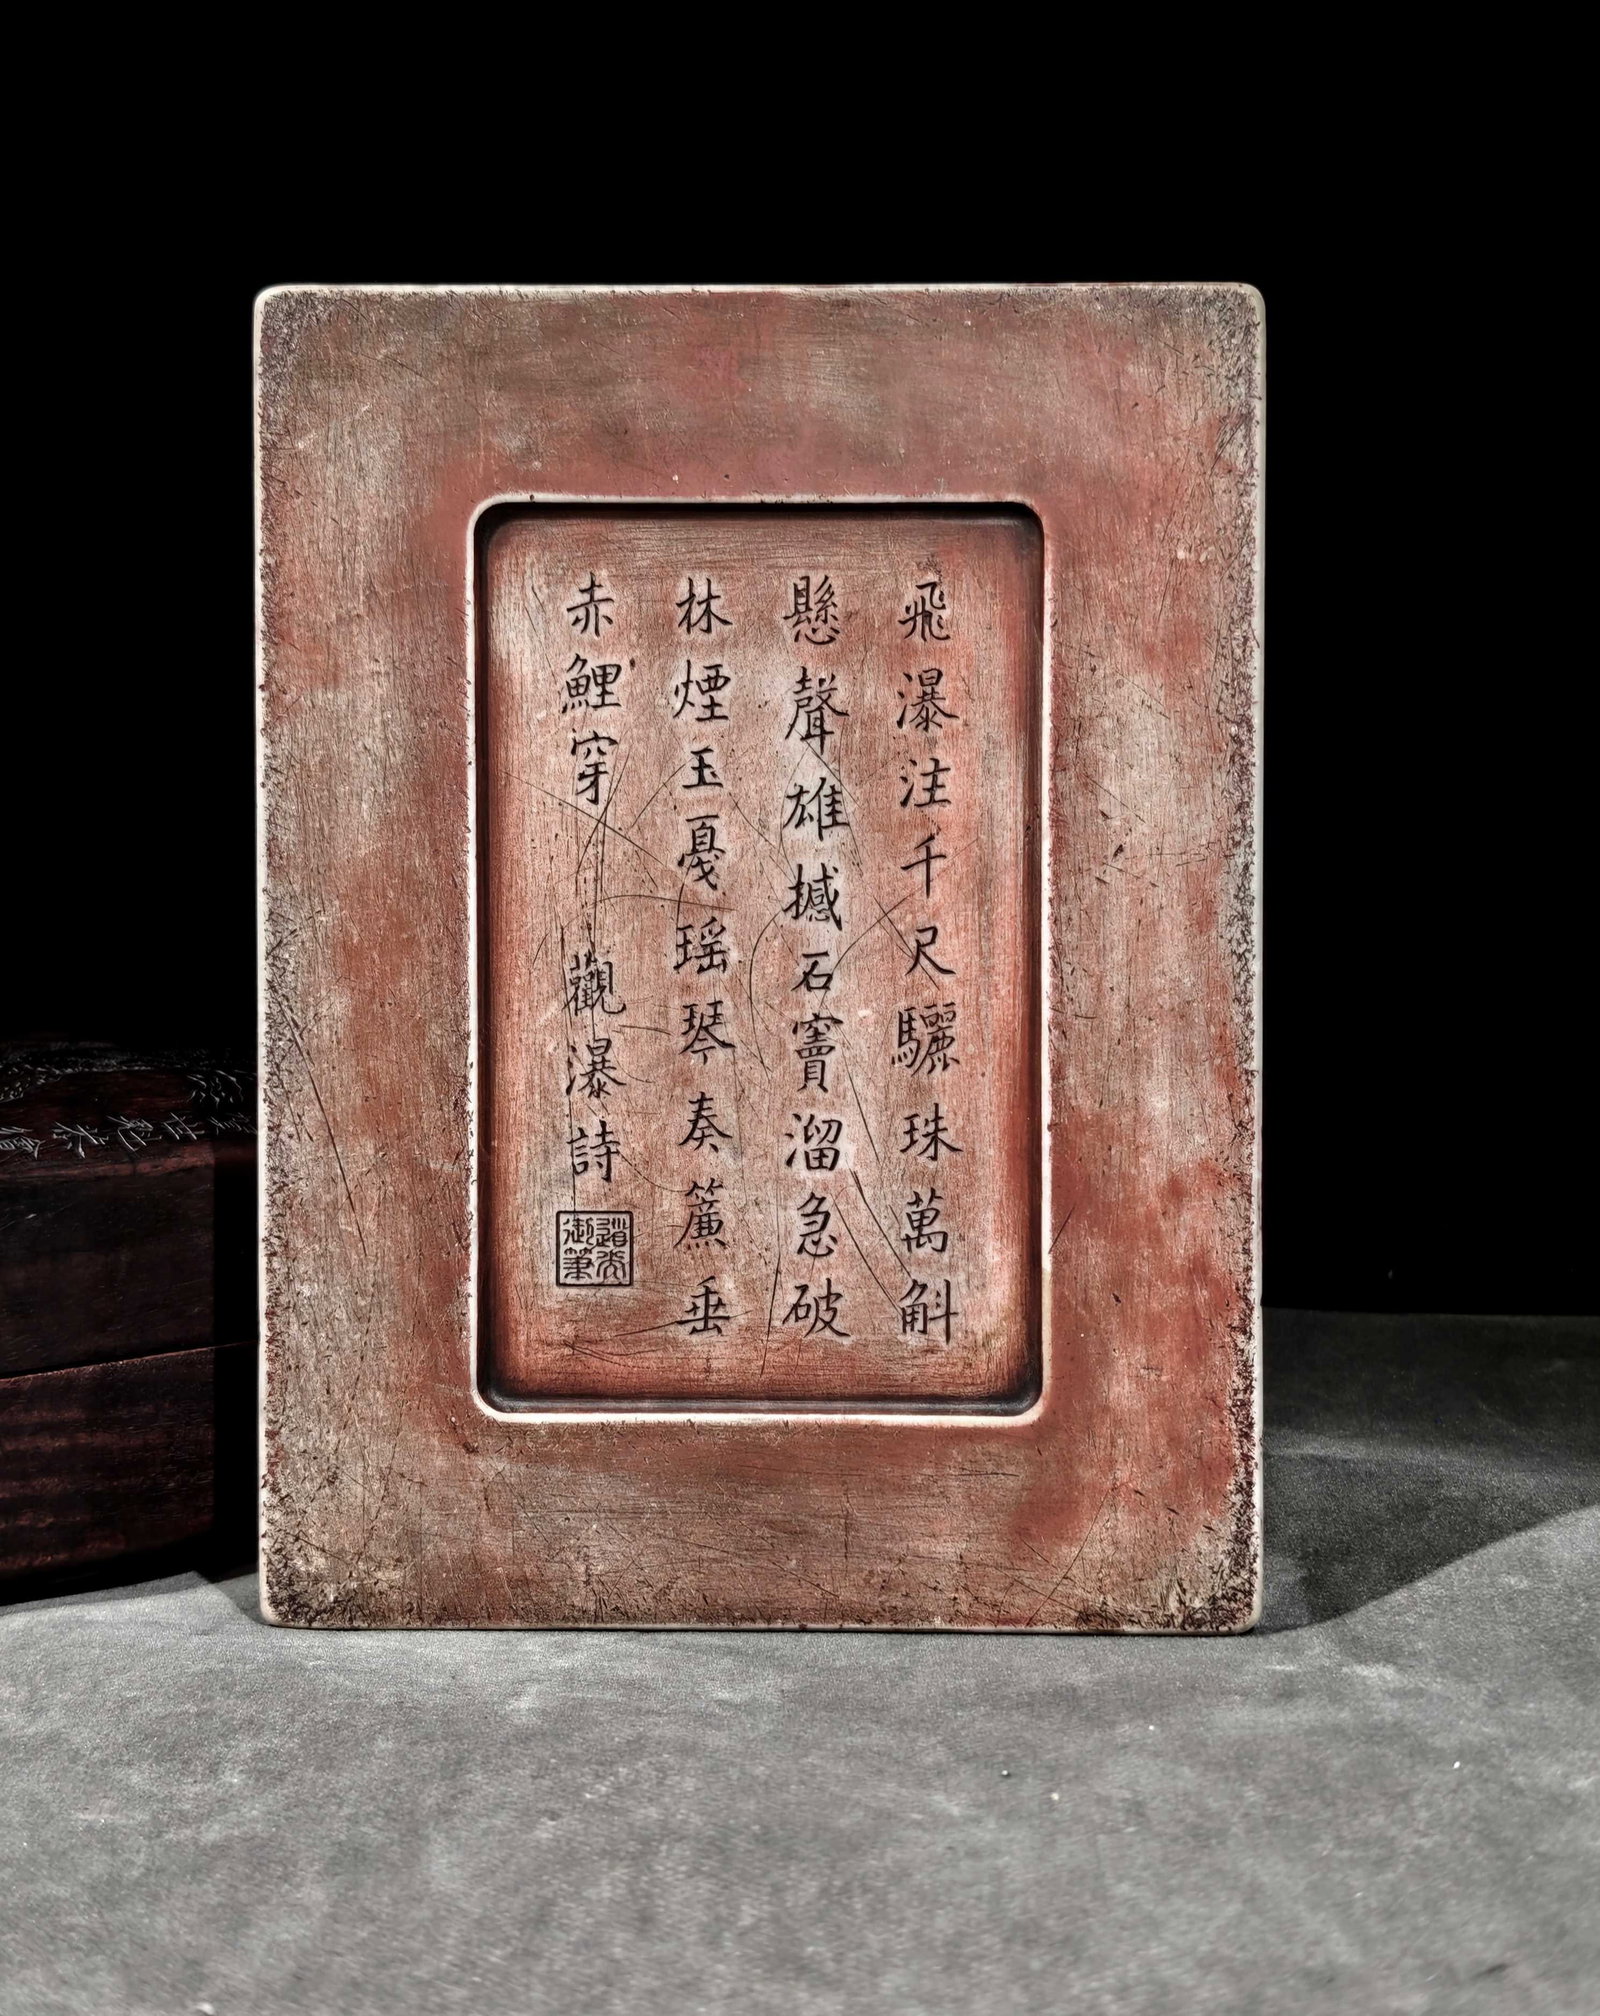 飛瀑注千尺驪珠萬斛
懸聲雄撼石竇溜急破
林煙玉戛瑶琴奏簾垂
赤鯉穿 觀瀑詩
道光
御筆